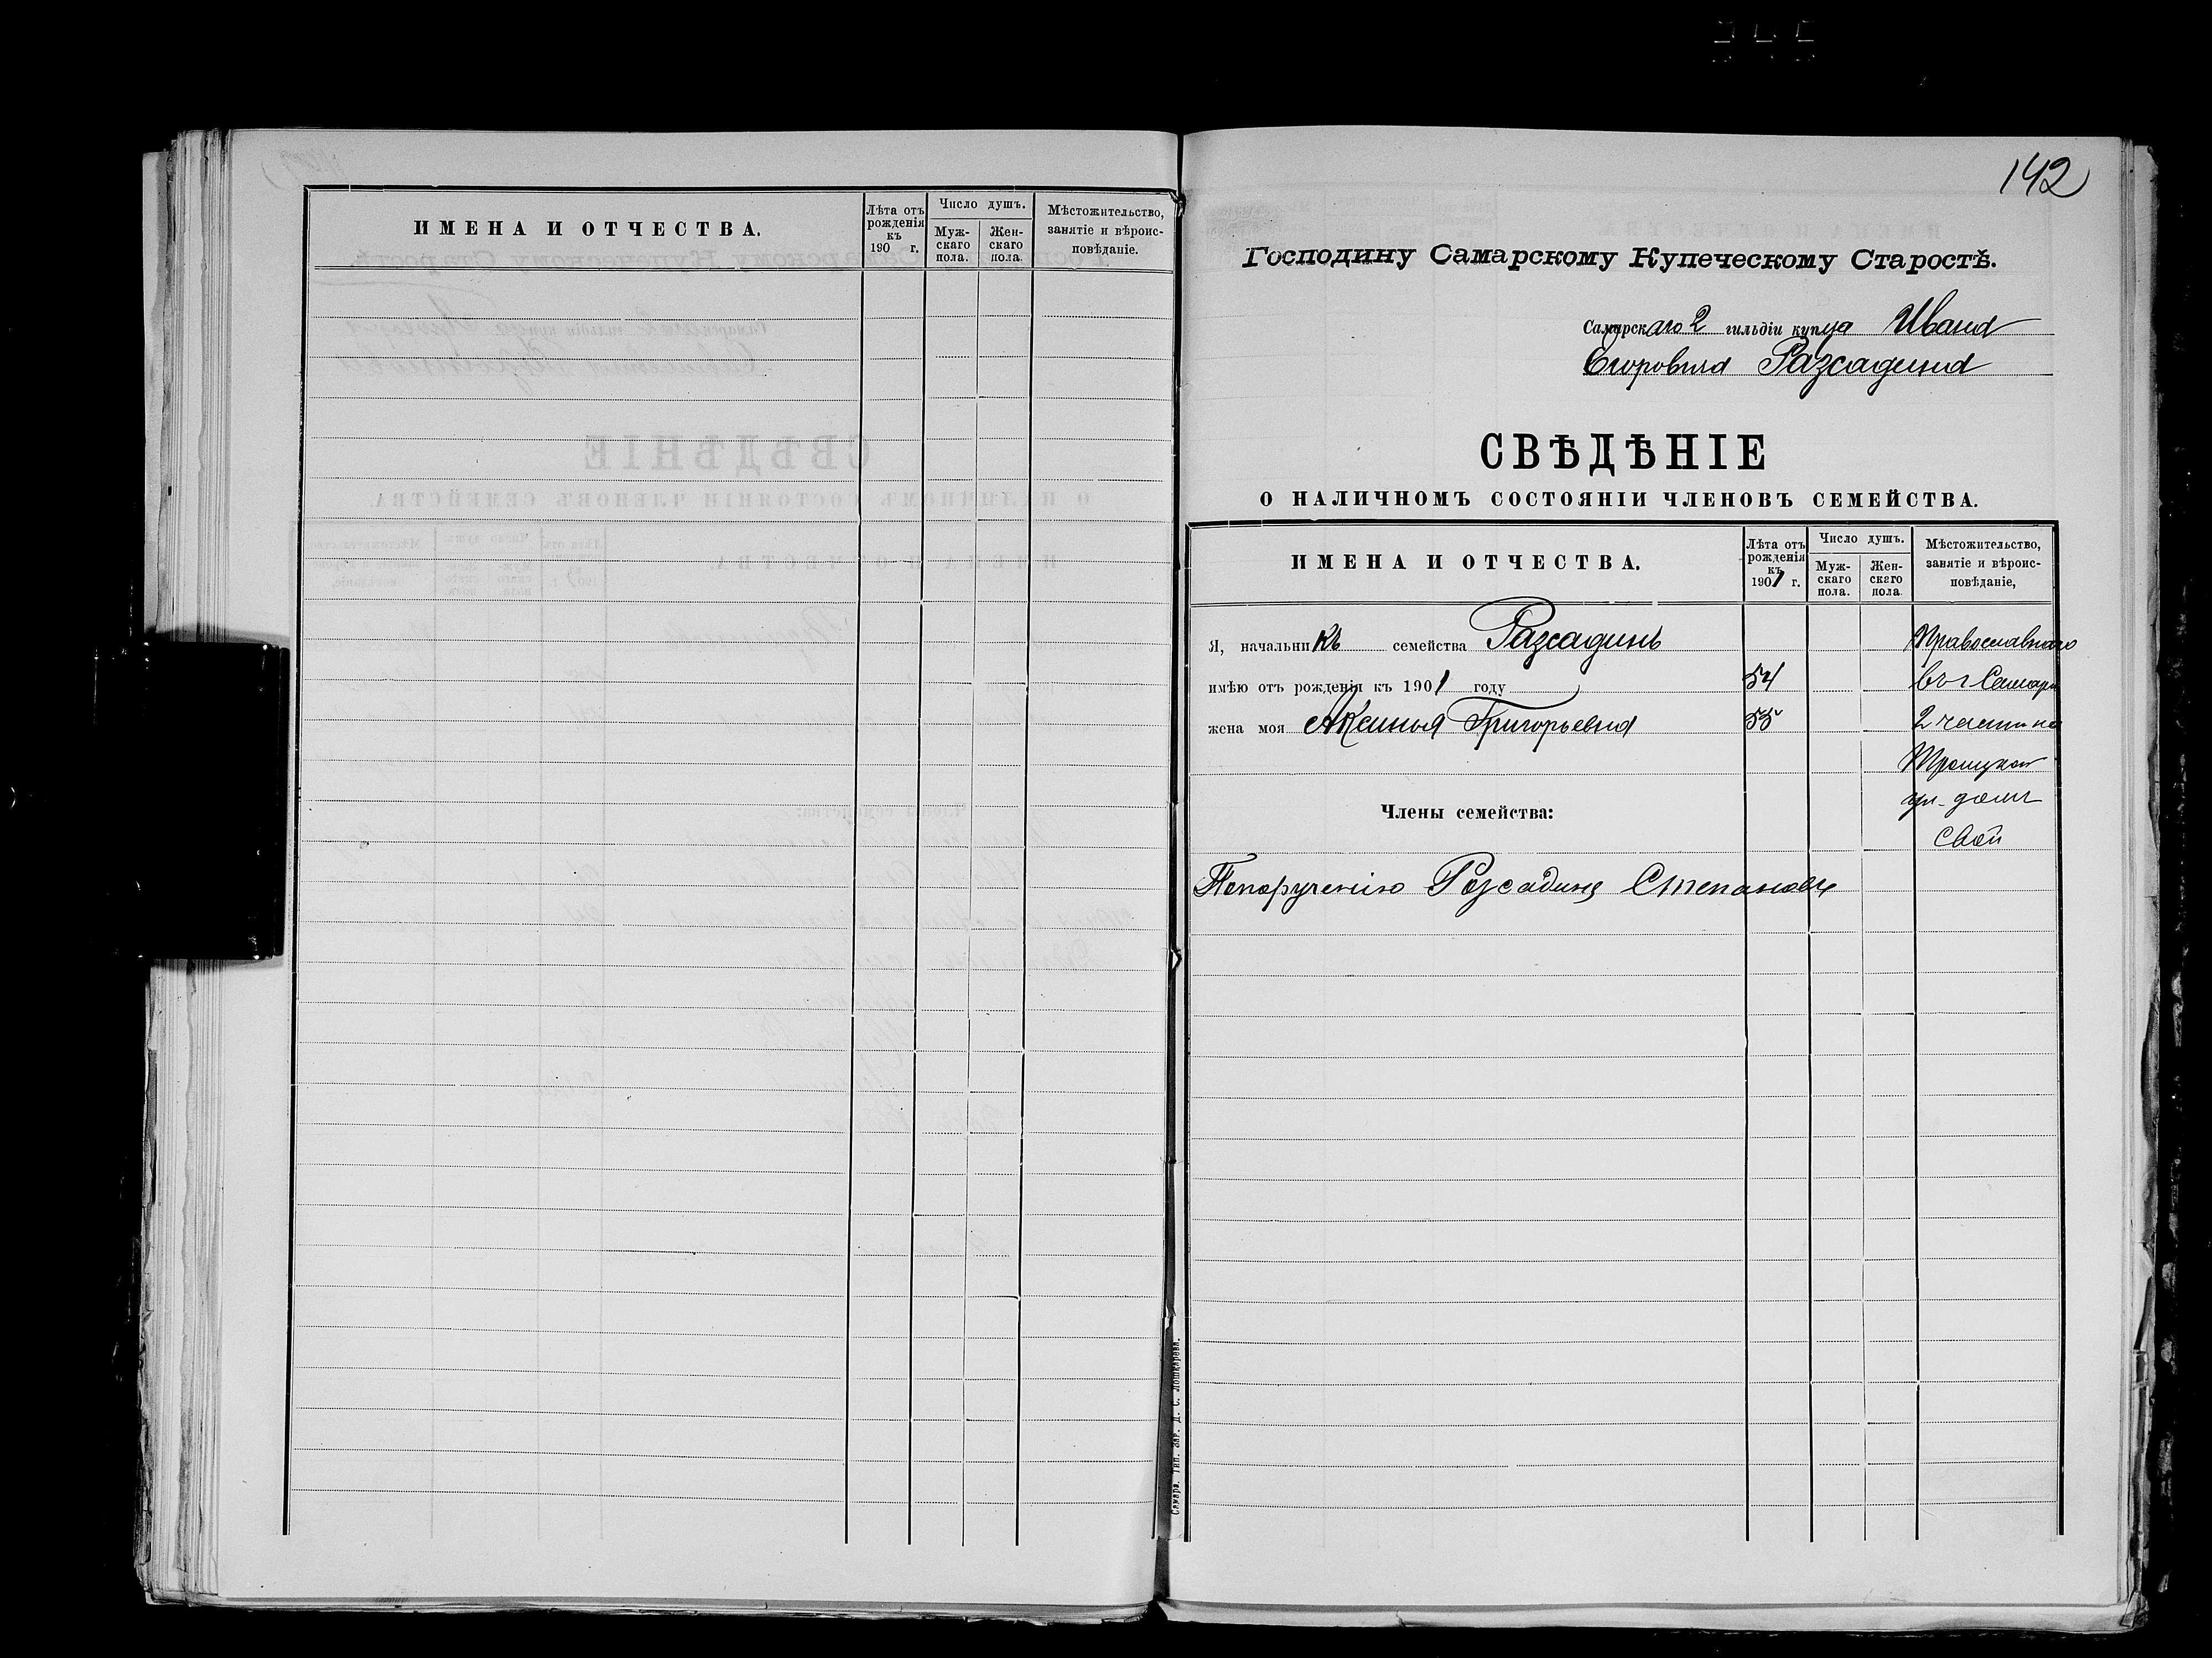 ИМЕНА И ОТЧЕСТВА.
Лѣта отъ рожденія къ 190 г.
Число душъ.
Мужскаго пола.
Женскаго пола.
Мѣстожительство, занятіе и вѣроисповѣданіе.
142
Господину Самарскому Купеческому Старостѣ.
Самарскаго 2 гильдіи купца Ивана
Егоровича Разсадина
СВѢДѢНІЕ
О НАЛИЧНОМЪ СОСТОЯНІИ ЧЛЕНОВЪ СЕМЕЙСТВА.
ИМЕНА И ОТЧЕСТВА.
Лѣта отъ рожденія къ 1901 г.
Число душъ.
Мужскаго пола.
Женскаго пола.
Мѣстожительство, занятіе и вѣроисповѣданіе,
Я, начальникъ семейства Разсадинъ Православнаго
имѣю отъ рожденія къ 1901 году 54 въ г Самарѣ
жена моя Аксинья Григорьевна 55 2 части на
Троицкой
ул. домъ
Члены семейства:
свой
По порученію Разсадина Степановъ
Самара. Тип. Зар. Д. С. Лошкарева.